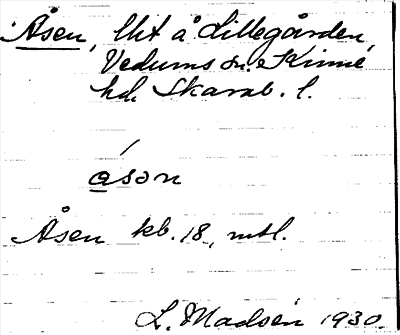 Åsen, lht å Lillegården,
Vedums sn. Kinne
hd. Skarab. l.
åsön
Åsen kb. 18, mtl.
L. Madsén 1930.